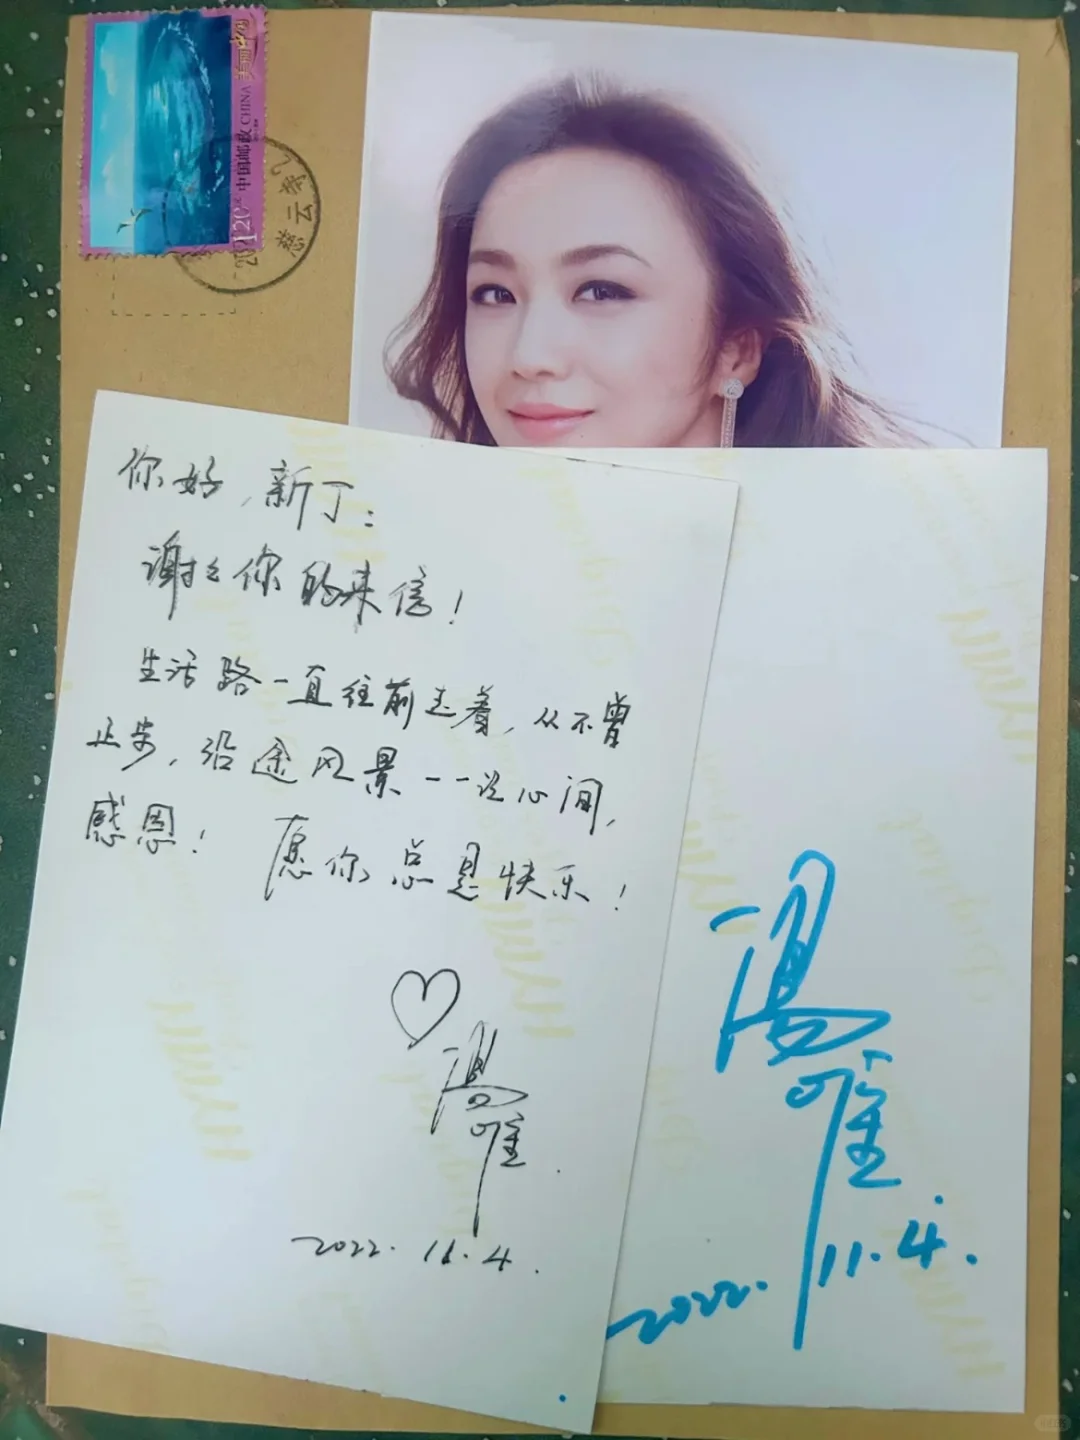 中国邮政 CHINA
美丽中国
120分
慈云寺
你好,新丁:
谢谢你的来信!
生活路一直往前走着,从不曾
止步,沿途风景一一没心间,
感恩! 愿你总是快乐!
汤唯
2022.11.4.
汤唯
2022.11.4.